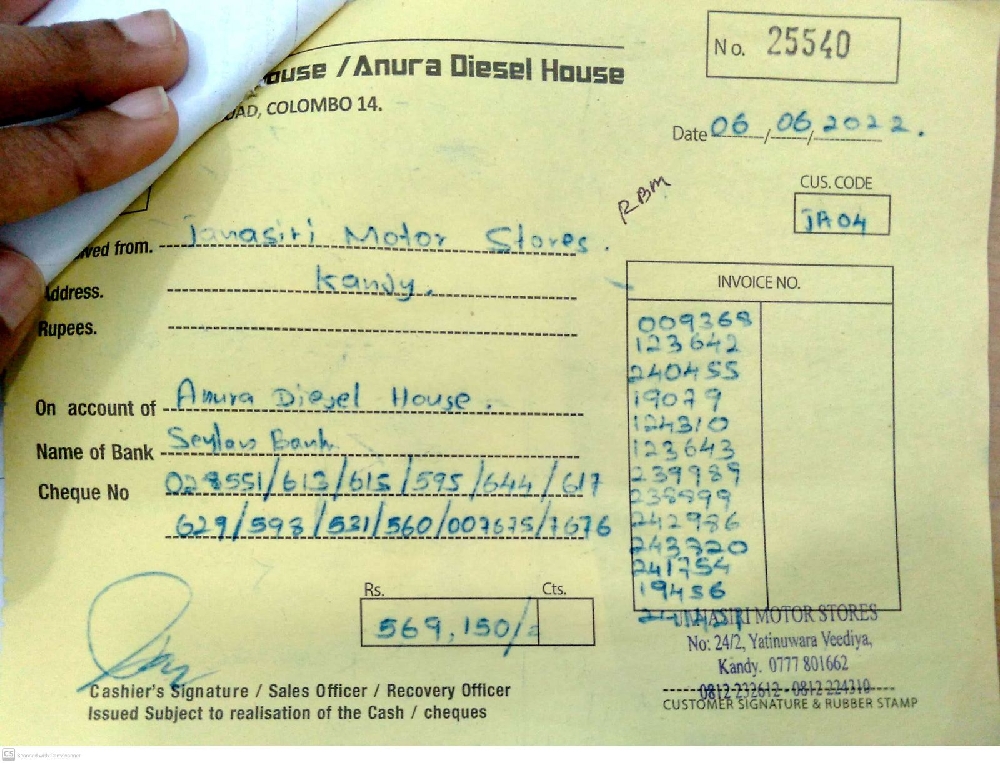 No. 25540
ouse / Anura Diesel House
OAD, COLOMBO 14.
Date 06/06/2022.
RBM
CUS. CODE
JA04
ved from. Janasiri Motor Stores.
Address. Kandy.
Rupees.
On account of Anura Diesel House.
Name of Bank Seylan Bank
Cheque No 028551/613/615/595/644/617
629/593/531/560/007675/7676
INVOICE NO.
009368
123642
240455
19079
124310
123643
239989
238999
242986
243320
241754
19456
Rs. Cts.
569,150/=
JANASIRI MOTOR STORES
No: 24/2, Yatinuwara Veediya,
Kandy. 0777 801662
0812-232612 - 0812 224310
CUSTOMER SIGNATURE & RUBBER STAMP
Cashier's Signature / Sales Officer / Recovery Officer
Issued Subject to realisation of the Cash / cheques
CS